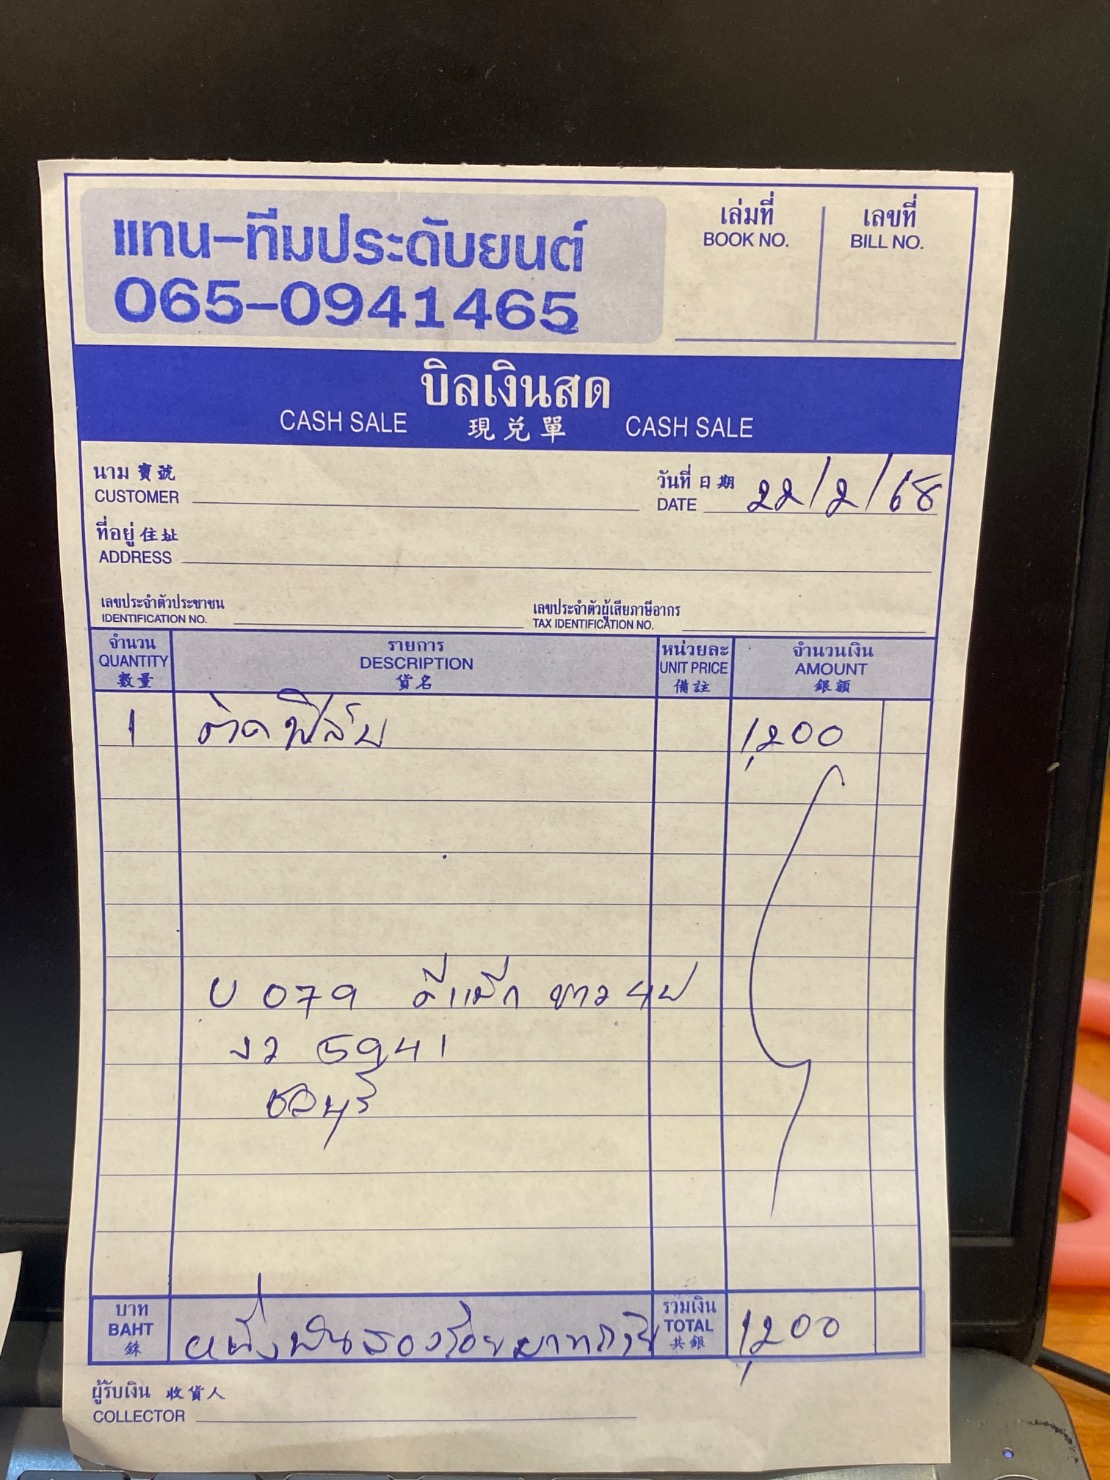 แทน-ทีมประดับยนต์
065-0941465
เล่มที่
BOOK NO.
เลขที่
BILL NO.
บิลเงินสด
CASH SALE 現兑單 CASH SALE
นาม 寶號
CUSTOMER
วันที่ 日期
DATE 22/2/68
ที่อยู่ 住址
ADDRESS
เลขประจำตัวประชาชน
IDENTIFICATION NO.
เลขประจำตัวผู้เสียภาษีอากร
TAX IDENTIFICATION NO.
จำนวน
QUANTITY
數量
รายการ
DESCRIPTION
貨名
หน่วยละ
UNIT PRICE
備註
จำนวนเงิน
AMOUNT
銀額
1 ติดฟิล์ม 1,200
U 079 ดีแม็ก ขาว 4ป
งว 5941
ชลบุรี
บาท
BAHT
銖
หนึ่งพันสองร้อยบาทถ้วน
รวมเงิน
TOTAL
共銀
1,200
ผู้รับเงิน 收貨人
COLLECTOR